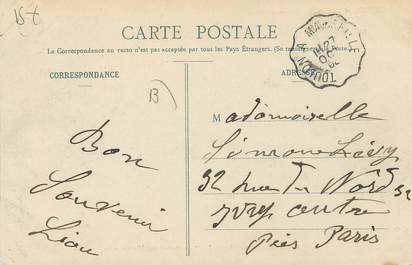 15t
CARTE POSTALE
La Correspondance au recto n'est pas acceptée par tous les Pays Étrangers. (Se renseigner à la Poste)
CORRESPONDANCE
ADRESSE
MARSEILLE A TOULON
27
OCT
B
Mademoiselle
Simone Lévy
32 rue du Nord 32
Ivry centre
Près Paris
Bon
Souvenir